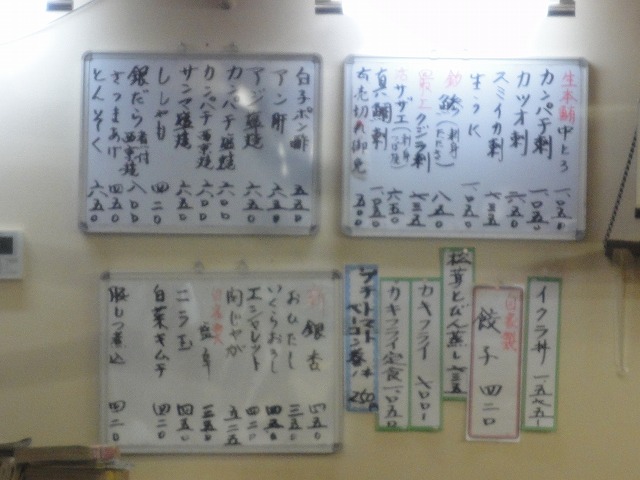 生本鮪中とろ 一〇五〇
カンパチ刺 一〇五〇
カツオ刺 六五〇
スミイカ刺 七三五
生うに 一〇五〇
鯵(刺身 たたき) 八五〇
クジラ刺 七三五
サザエ(刺身 つぼ焼) 六五〇
真鯛刺 一〇五〇
白子ポン酢 五五〇
アン肝 六五〇
アジ塩焼 六五〇
カンパチ塩焼 六〇〇
カンパチ西京焼 六〇〇
サンマ塩焼 六五〇
ししゃも 四二〇
銀だら 煮付 西京焼 八〇〇
さつまあげ 四五〇
とんそく 六五〇
イクラ丼 一五七五
自家製 餃子 四二〇
松茸どびん蒸し 六三五
カキフライ
カキフライ定食 一〇五〇
プチトマト ベーコン巻 1本 250円
新 銀杏 四五〇
おひたし 三五〇
いくらおろし
エシャレット 四二〇
肉じゃが 五二五
ニラ玉 四五〇
白菜キムチ 四二〇
豚もつ煮込 四二〇